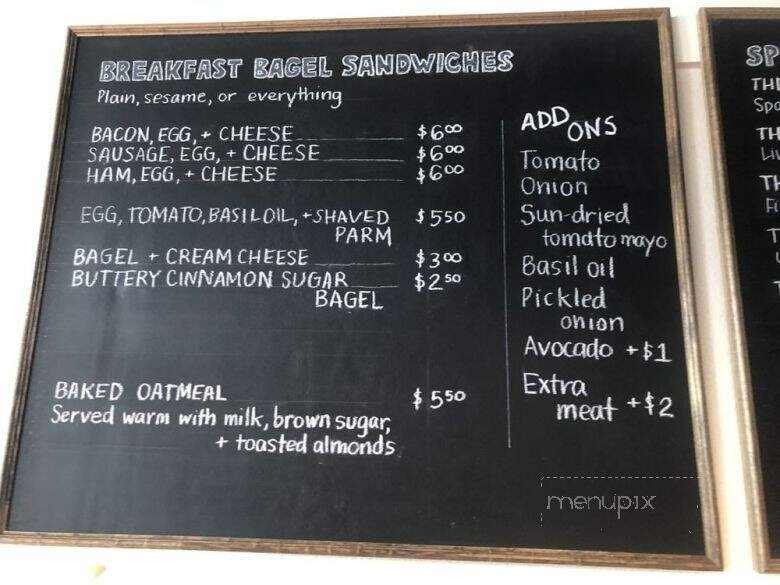 BREAKFAST BAGEL SANDWICHES
Plain, sesame, or everything
BACON, EGG, + CHEESE $6.00
SAUSAGE, EGG, + CHEESE $6.00
HAM, EGG, + CHEESE $6.00
EGG, TOMATO, BASIL OIL, + SHAVED $5.50
PARM
BAGEL + CREAM CHEESE $3.00
BUTTERY CINNAMON SUGAR $2.50
BAGEL
BAKED OATMEAL $5.50
Served warm with milk, brown sugar,
+ toasted almonds
ADD
ONS
Tomato
Onion
Sun-dried
tomato mayo
Basil oil
Pickled
onion
Avocado +$1
Extra
meat +$2
menupix
SP